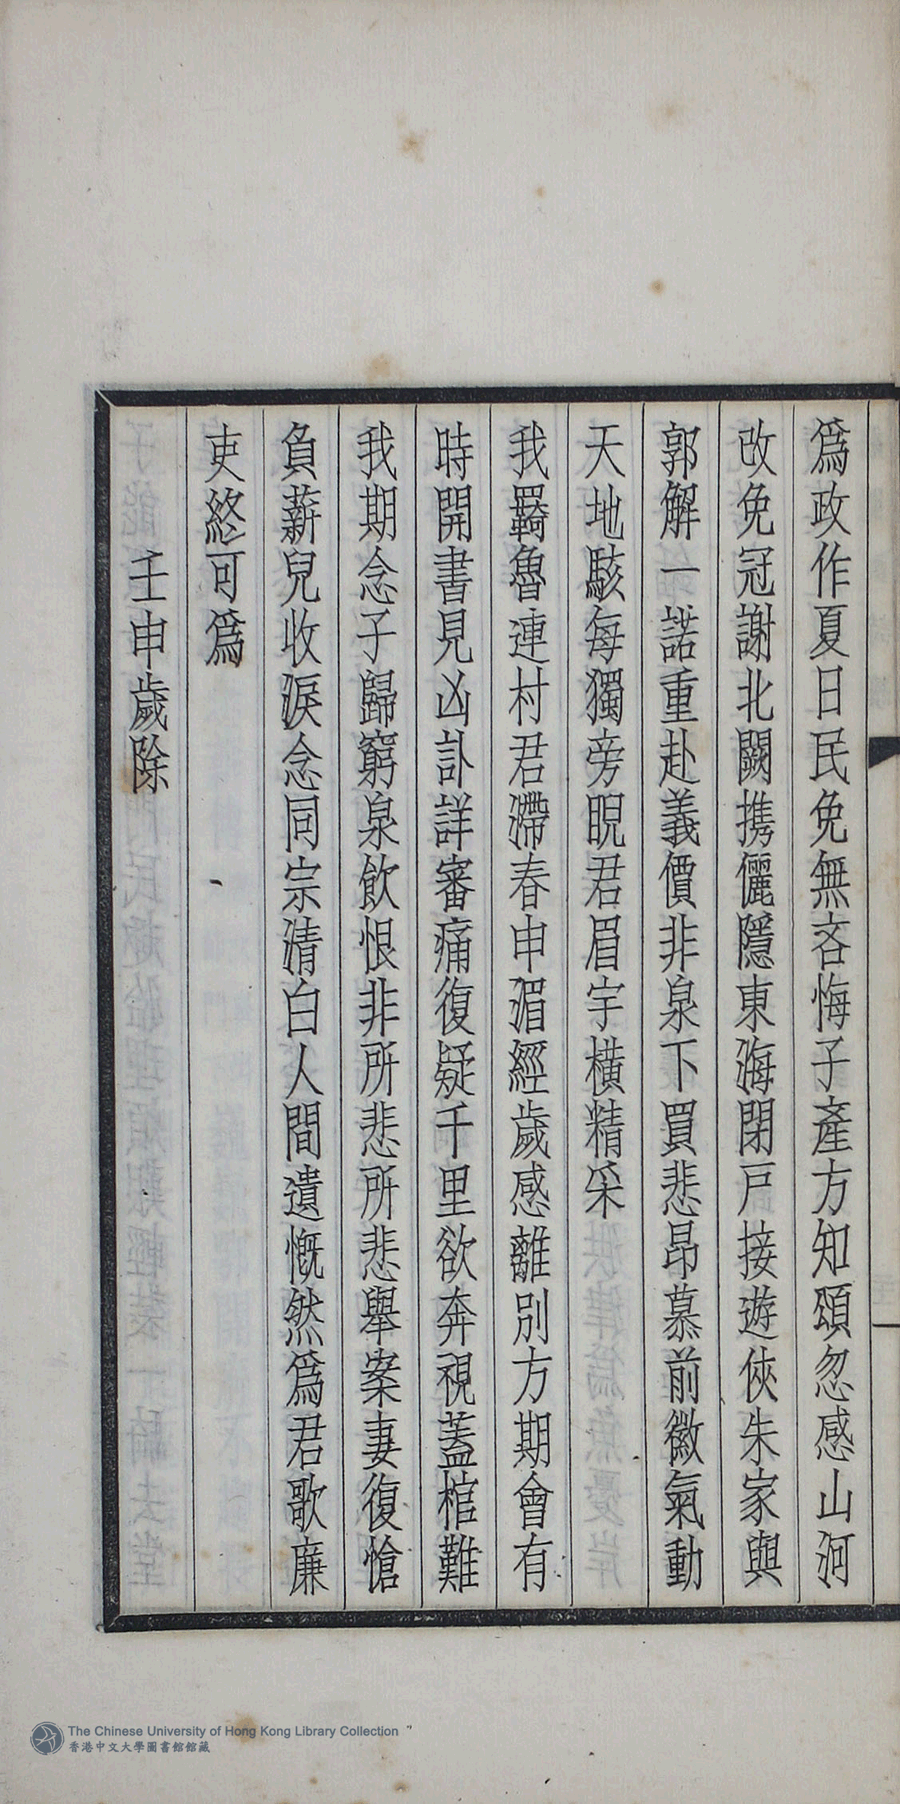 爲政作夏日民免無吝悔子產方知頌忽感山河
改免冠謝北闕携儷隱東海閉戸接遊俠朱家與
郭解一諾重赴義價非泉下買悲昂慕前徽氣動
天地駭每獨旁睨君眉宇橫精采
我羈魯連村君滯春申湄經歲感離別方期會有
時開書見凶訃詳審痛復疑千里欲奔視蓋棺難
我期念子歸窮泉飲恨非所悲所悲舉案妻復愴
負薪兒收淚念同宗清白人間遺慨然爲君歌廉
吏終可爲
壬申歲除
The Chinese University of Hong Kong Library Collection
香港中文大學圖書館館藏